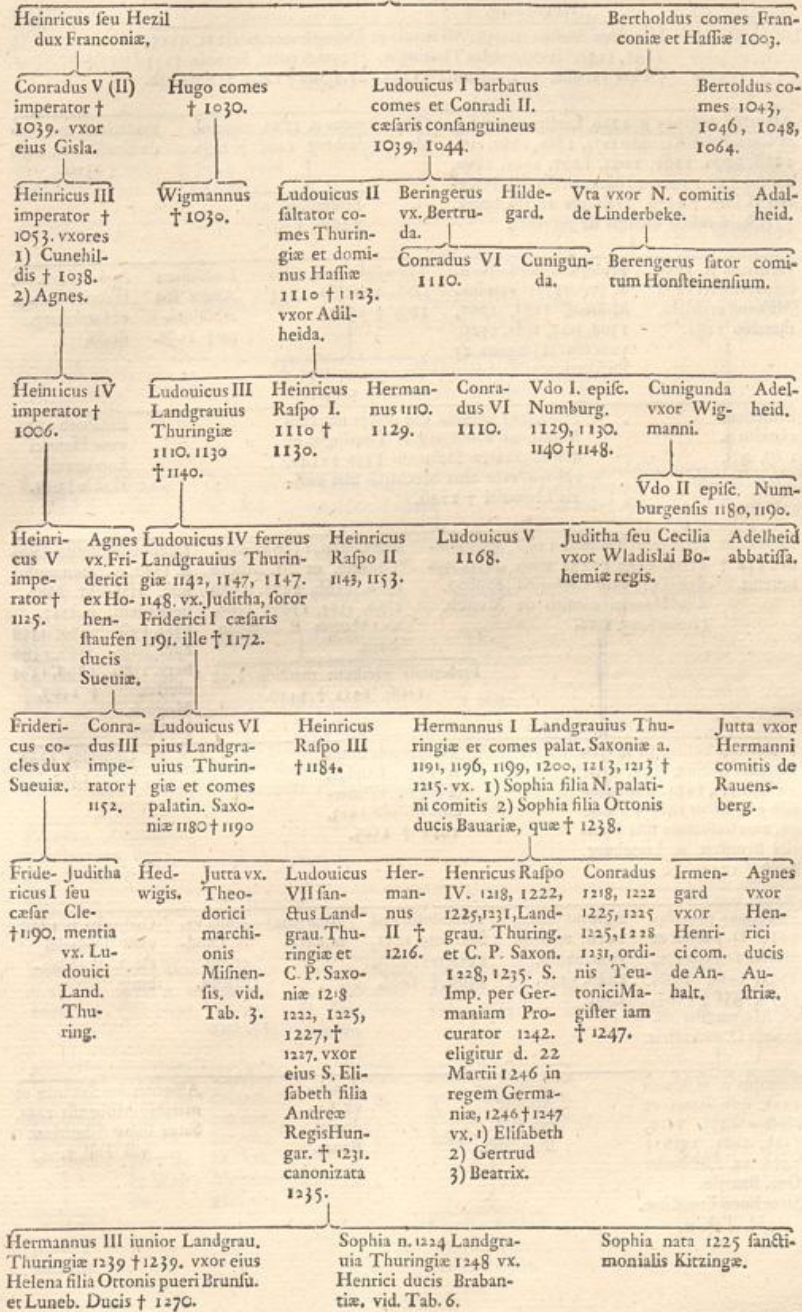 Heinricus ſeu Hezil
dux Franconiæ.
Bertholdus comes Fran-
coniæ et Haſſiæ 1003.
Conradus V (II)
imperator †
1039. vxor
eius Giſla.
Hugo comes
† 1030.
Ludouicus I barbatus
comes et Conradi II.
cæſaris conſanguineus
1039, 1044.
Bertoldus co-
mes 1043,
1046, 1048,
1064.
Heinricus III
imperator †
1053. vxores
1) Cunehil-
dis † 1038.
2) Agnes.
Wigmannus
† 1030.
Ludouicus II
ſaltator co-
mes Thurin-
giæ et domi-
nus Haſſiæ
1110 † 1123.
vxor Adil-
heida.
Beringerus
vx. Bertru-
da.
Hilde-
gard.
Vra vxor N. comitis
de Linderbeke.
Adal-
heid.
Conradus VI
1110.
Cunigun-
da.
Berengerus ſator comi-
tum Honſteinenſium.
Heinricus IV
imperator †
1006.
Ludouicus III
Landgrauius
Thuringiæ
1110. 1130
† 1140.
Heinricus
Raſpo I.
1110 †
1130.
Herman-
nus 1110.
1129.
Conra-
dus VI
1110.
Vdo I. epiſc.
Numburg.
1129, 1130.
1140 † 1148.
Cunigunda
vxor Wig-
manni.
Adel-
heid.
Vdo II epiſc. Num-
burgenſis 1180, 1190.
Heinri-
cus V
impe-
rator †
1125.
Agnes
vx. Fri-
derici
ex Ho-
hen-
ſtaufen
ducis
Sueuiæ.
Ludouicus IV ferreus
Landgrauius Thurin-
giæ 1142, 1147, 1147.
1148. vx. Juditha, ſoror
Friderici I cæſaris
1191. ille † 1172.
Heinricus
Raſpo II
1143, 1153.
Ludouicus V
1168.
Juditha ſeu Cecilia
vxor Wladislai Bo-
hemiæ regis.
Adelheid
abbatiſſa.
Frideri-
cus co-
cles dux
Sueuiæ.
Conra-
dus III
impe-
rator †
1152.
Ludouicus VI
pius Landgra-
uius Thurin-
giæ et comes
palatin. Saxo-
niæ 1180 † 1190
Heinricus
Raſpo III
† 1184.
Hermannus I Landgrauius Thu-
ringiæ et comes palat. Saxoniæ a.
1191, 1196, 1199, 1200, 1213, 1213 †
1215. vx. 1) Sophia filia N. palati-
ni comitis 2) Sophia filia Ottonis
ducis Bauariæ, quæ † 1238.
Jutta vxor
Hermanni
comitis de
Rauens-
berg.
Fride-
ricus I
cæſar
† 1190.
Juditha
ſeu
Cle-
mentia
vx. Lu-
douici
Land.
Thu-
ring.
Hed-
wigis.
Jutta vx.
Theo-
dorici
marchi-
onis
Miſnen-
ſis. vid.
Tab. 3.
Ludouicus
VII ſan-
ctus Land-
grau. Thu-
ringiæ et
C. P. Saxo-
niæ 1218
1222, 1225,
1227, †
1227. vxor
eius S. Eli-
ſabeth filia
Andreæ
Regis Hun-
gar. † 1231.
canonizata
1235.
Her-
man-
nus
II †
1216.
Henricus Raſpo
IV. 1218, 1222,
1225, 1231, Land-
grau. Thuring.
et C. P. Saxon.
1228, 1235. S.
Imp. per Ger-
maniam Pro-
curator 1242.
eligitur d. 22
Martii 1246 in
regem Germa-
niæ, 1246 † 1247
vx. 1) Eliſabeth
2) Gertrud
3) Beatrix.
Conradus
1218, 1222
1225, 1225
1225, 1228
1231, ordi-
nis Teu-
tonici Ma-
giſter iam
† 1247.
Irmen-
gard
vxor
Henri-
ci com.
de An-
halt.
Agnes
vxor
Hen-
rici
ducis
Au-
ſtriæ.
Hermannus III iunior Landgrau.
Thuringiæ 1239 † 1239. vxor eius
Helena filia Ottonis pueri Brunſu.
et Luneb. Ducis † 1270.
Sophia n. 1224 Landgra-
uia Thuringiæ 1248 vx.
Henrici ducis Braban-
tiæ, vid. Tab. 6.
Sophia nata 1225 ſancti-
monialis Kitzingæ.